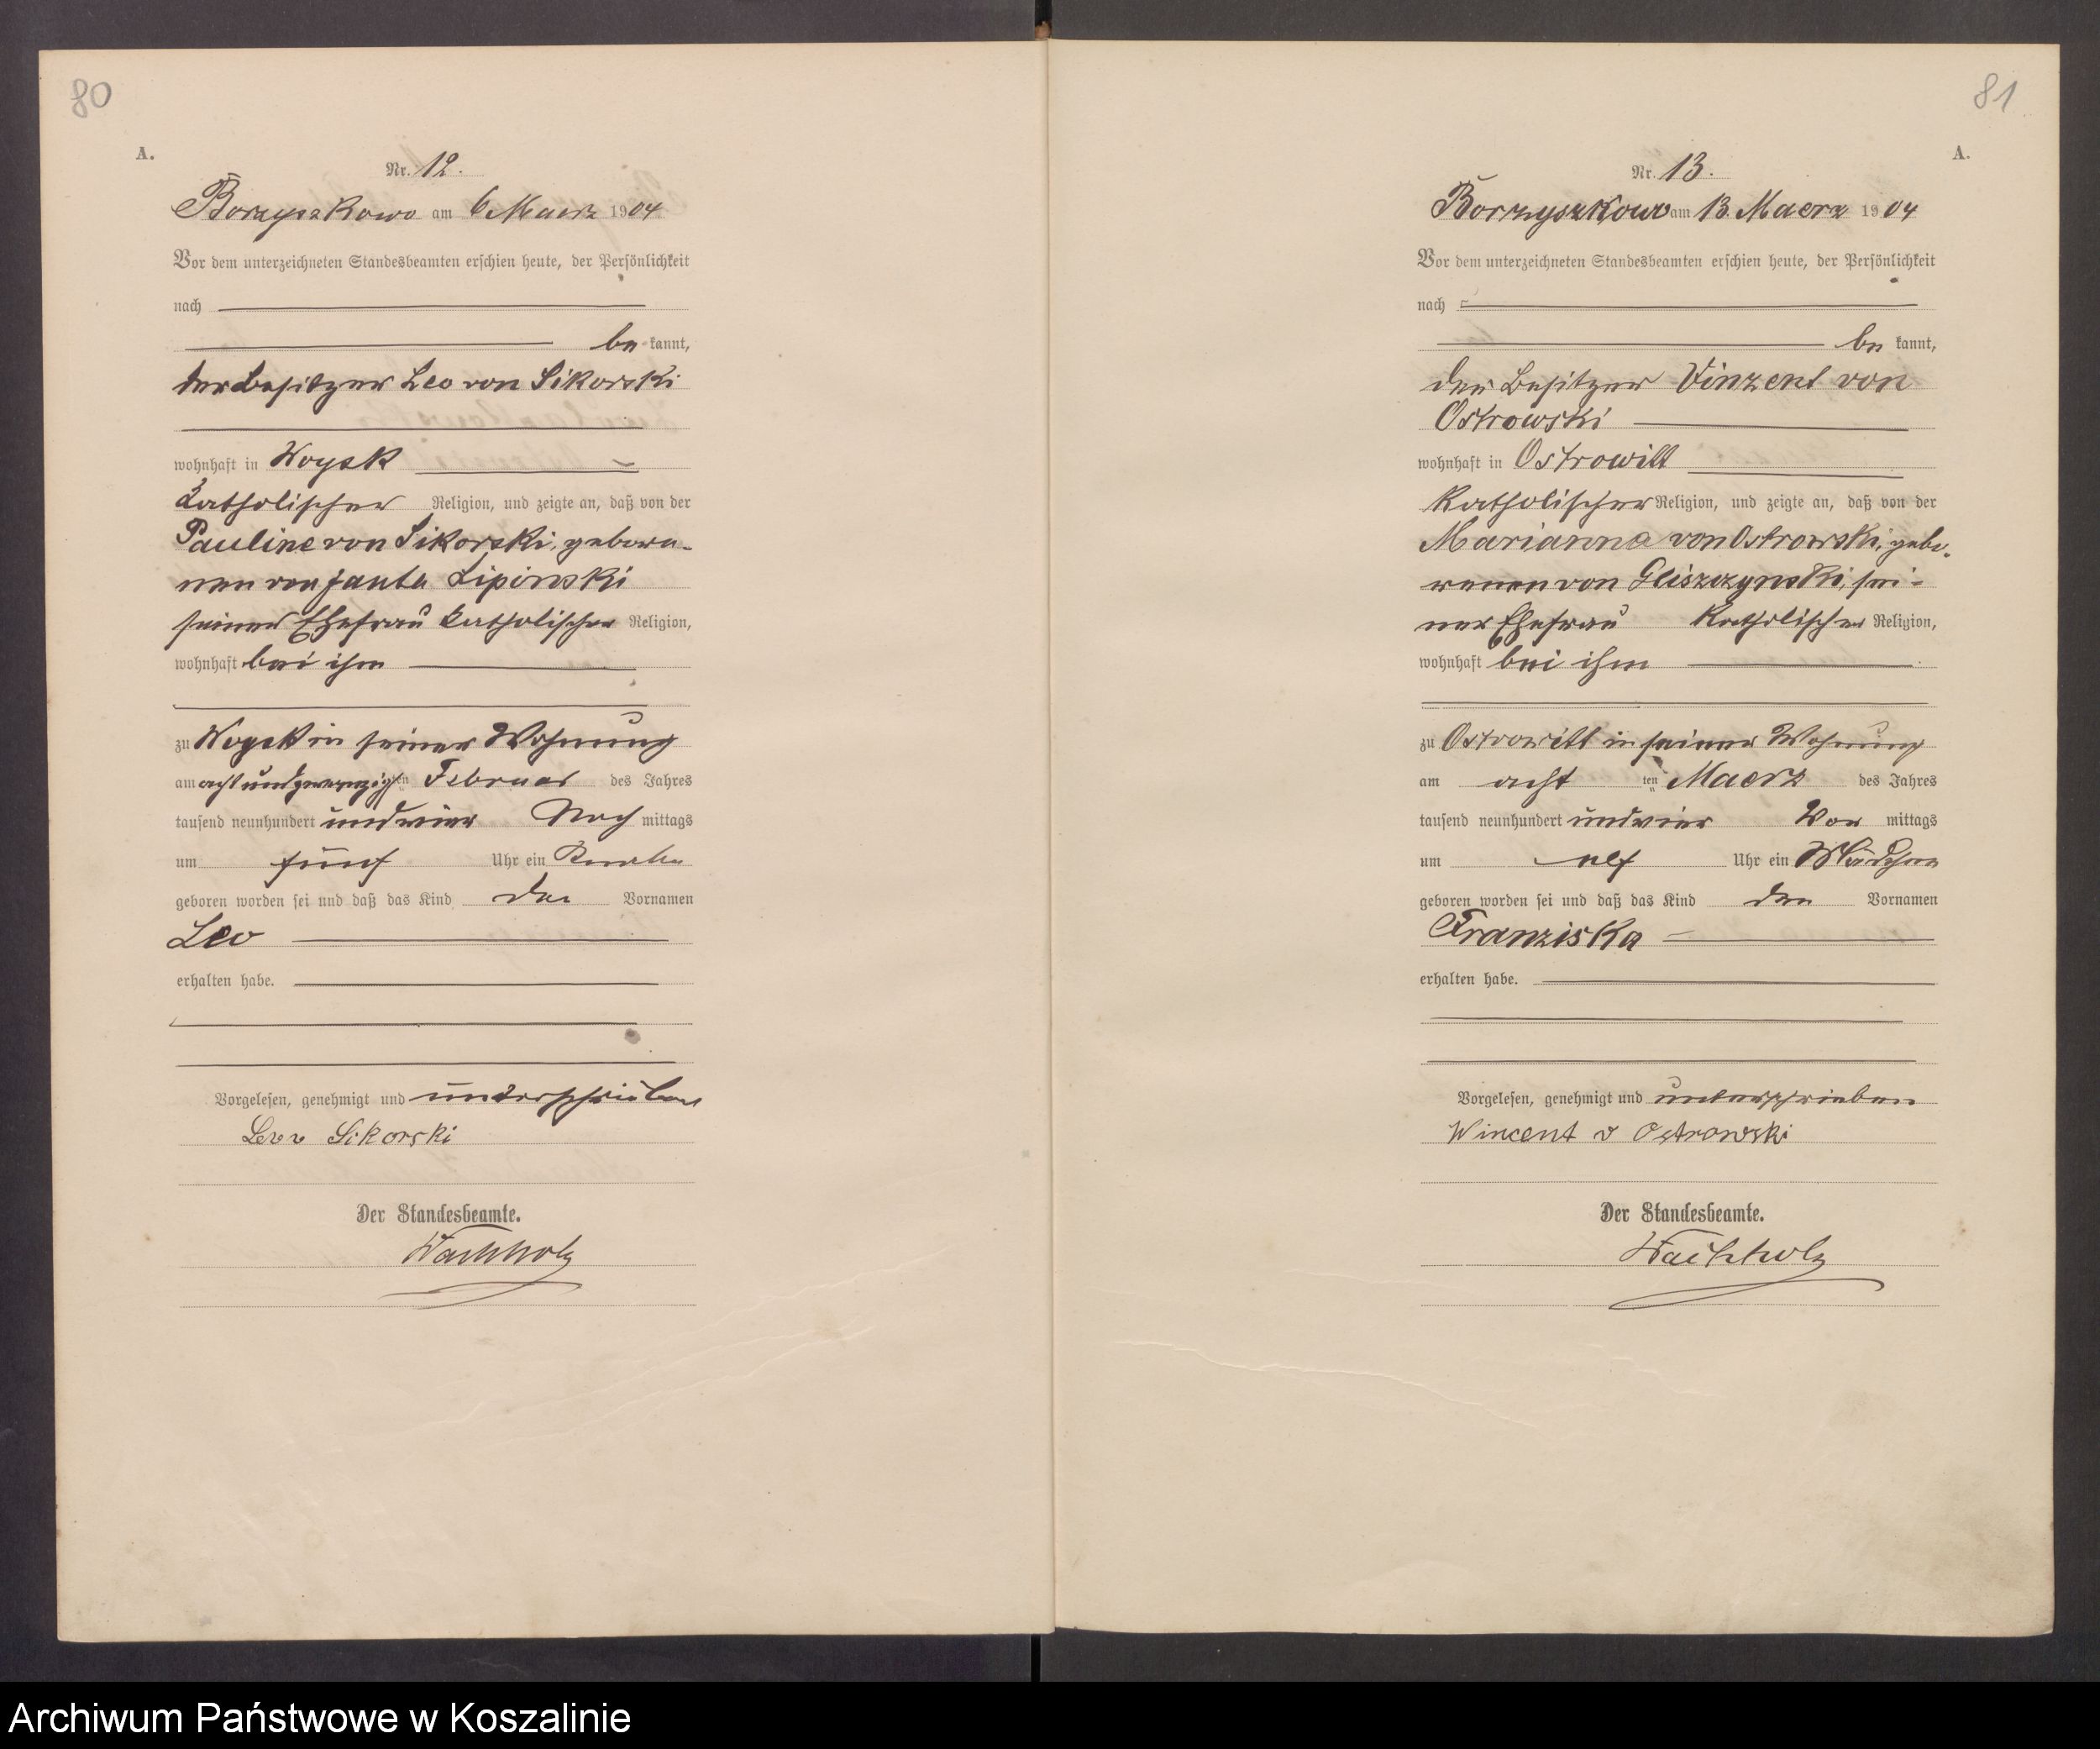 80
A.
Nr. 12.
Borzyszkowo am 6 Maerz 1904
Vor dem unterzeichneten Standesbeamten erschien heute, der Persönlichkeit
nach
be kannt,
der Besitzer Leo von Sikorski
wohnhaft in Woysk
katholischer Religion, und zeigte an, daß von der
Pauline von Sikorski, gebore-
nen von Janta Lipinski
seiner Ehefrau katholischer Religion,
wohnhaft bei ihm
zu Woysk in seiner Wohnung
am achtundzwanzigsten Februar des Jahres
tausend neunhundert und vier Nach mittags
um fünf Uhr ein Knabe
geboren worden sei und daß das Kind den Vornamen
Leo
erhalten habe.
Vorgelesen, genehmigt und unterschrieben
Leo v Sikorski
Der Standesbeamte.
Wachholz
81
A.
Nr. 13.
Borzyszkowo am 13. Maerz 1904
Vor dem unterzeichneten Standesbeamten erschien heute, der Persönlichkeit
nach
be kannt,
der Besitzer Vinzent von
Ostrowski
wohnhaft in Ostrowitt
katholischer Religion, und zeigte an, daß von der
Marianna von Ostrowski, gebo-
renen von Gliszczynski, sei-
ner Ehefrau katholischer Religion,
wohnhaft bei ihm
zu Ostrowitt in seiner Wohnung
am acht ten Maerz des Jahres
tausend neunhundert und vier Vor mittags
um elf Uhr ein Mädchen
geboren worden sei und daß das Kind den Vornamen
Franziska
erhalten habe.
Vorgelesen, genehmigt und unterschrieben
Wincent v Ostrowski
Der Standesbeamte.
Wachholz
Archiwum Państwowe w Koszalinie